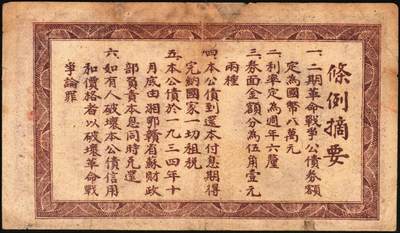 條例摘要
一、二期革命戰爭公債券額
定為國幣八萬元
二、利率定為週年六釐
三、券面金額分為伍角壹元
兩種
四、本公債到還本付息期得
完納國家一切租稅
五、本公債於一九三四年十
月底由湘鄂贛省蘇財政
部負責本息同時兌還
六、如有人破壞本公債信用
和價格者以破壞革命戰
爭論罪